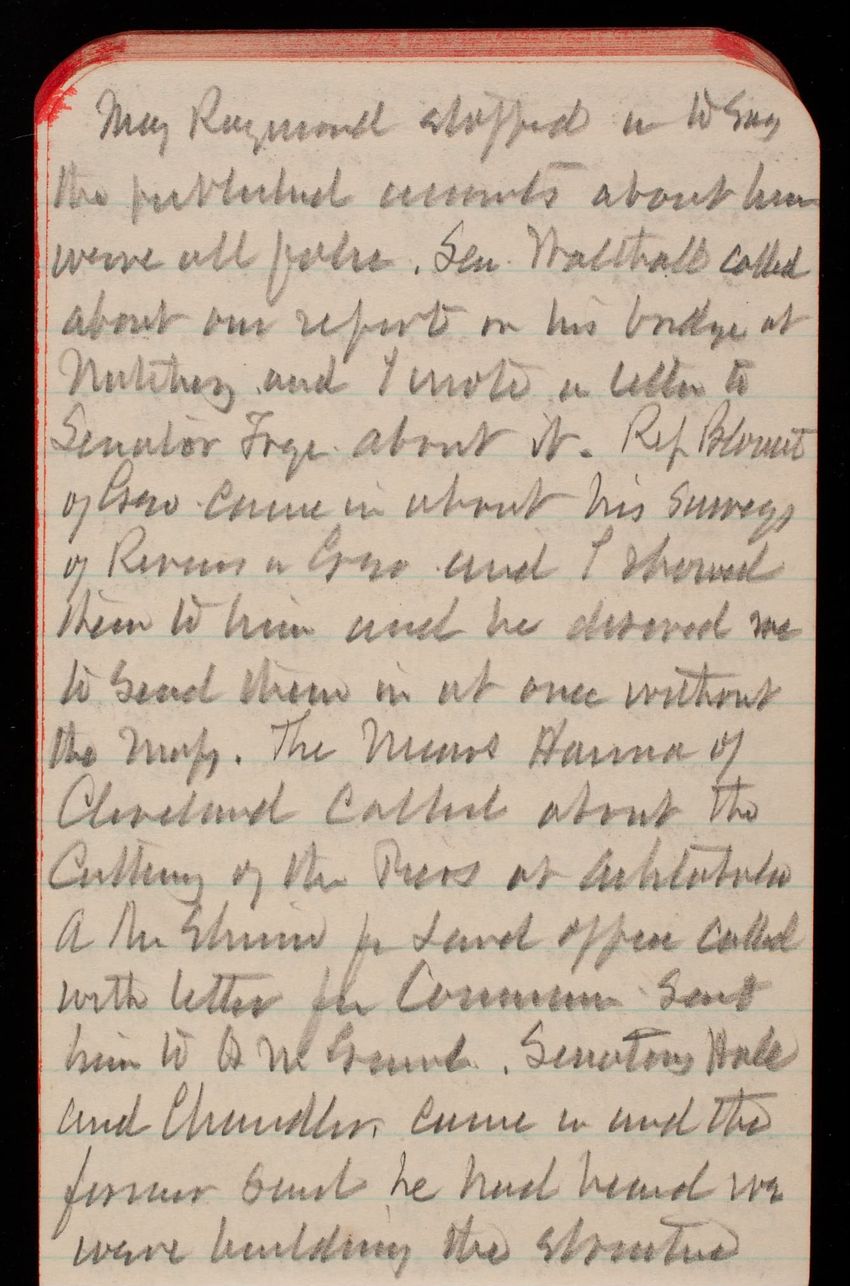 Maj Raymond stopped in to say
the published accounts about him
were all false. Sen Walthall called
about our report on his bridge at
Natchez and I wrote a letter to
Senator Frye about it. Rep Blount
of Geo came in about his surveys
of Rivers in Geo and I showed
them to him and he desired me
to send them in at once without
the maps. The Messrs Hanna of
Cleveland called about the
Cutting of the Piers at Ashtabula
A Mr for Land office called
with letter for Sent
him to Senators Hale
and Chandler, came in and the
former said he had heard we
were building the structure